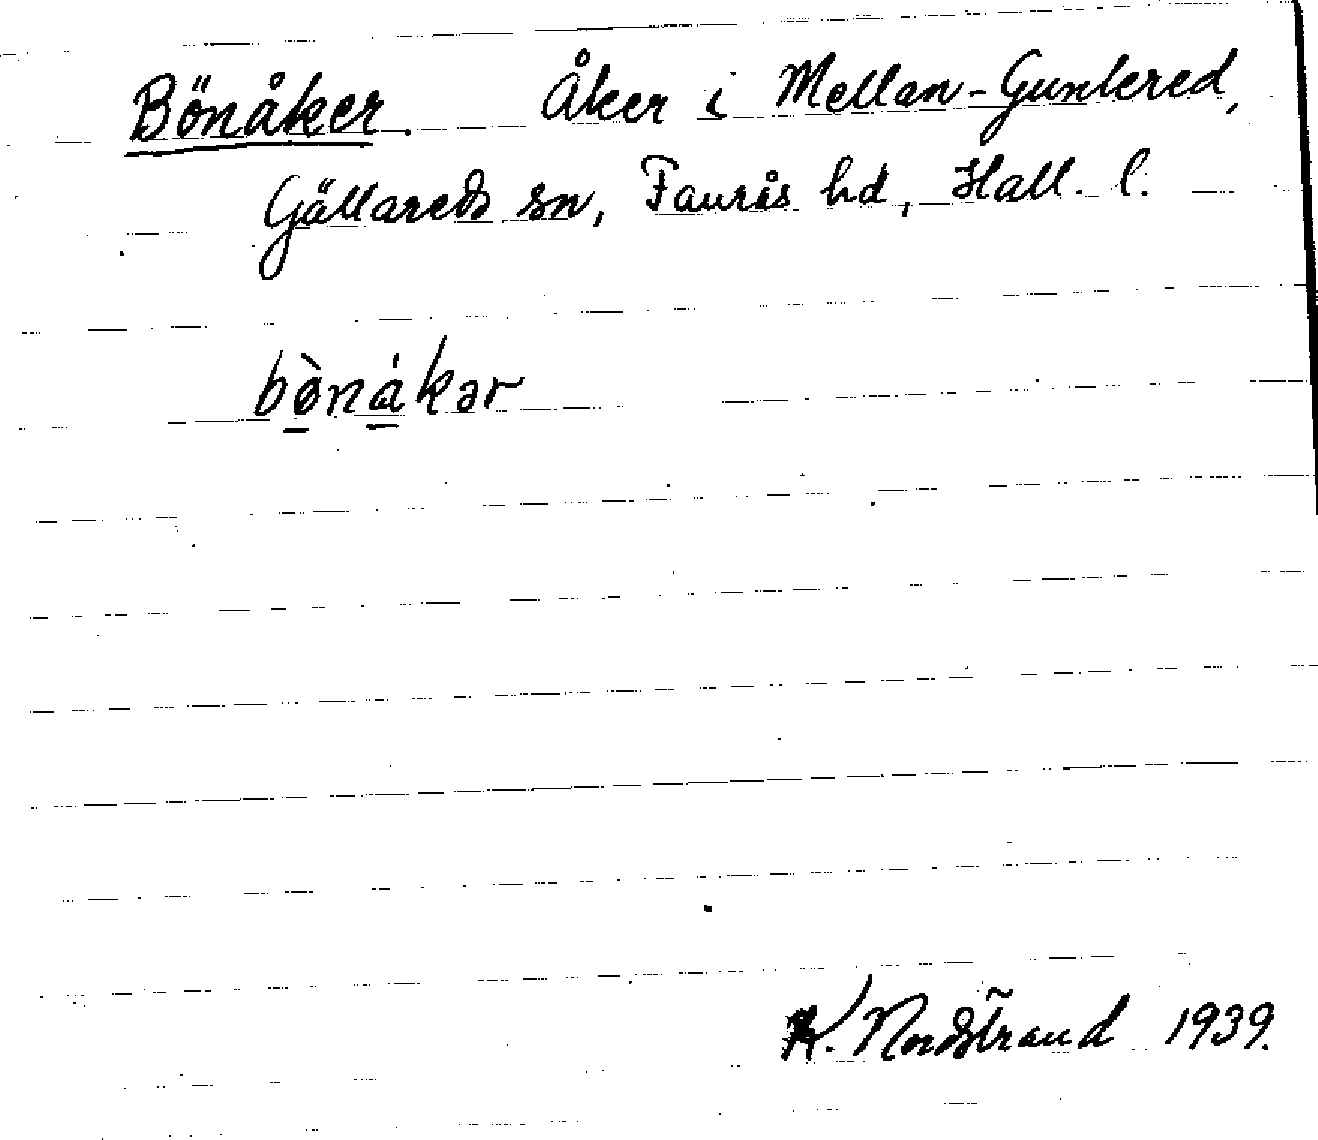 Bönåker. Åker i Mellan-Gunkered,
Gällareds sn, Faurås hd, Hall. l.
bø̀nákər
K. Nordstrand 1939.